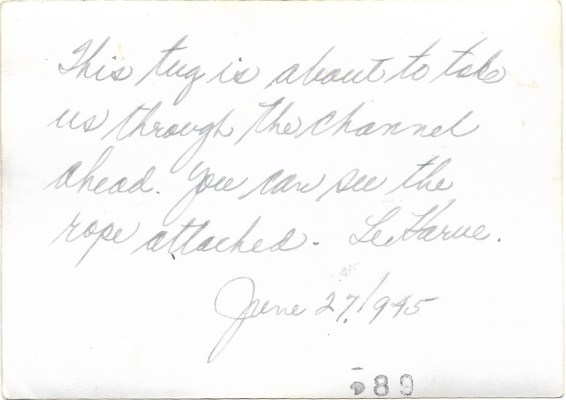 This tug is about to take
us through the channel
ahead. You can see the
rope attached. Le Harve.
June 27, 1945
89